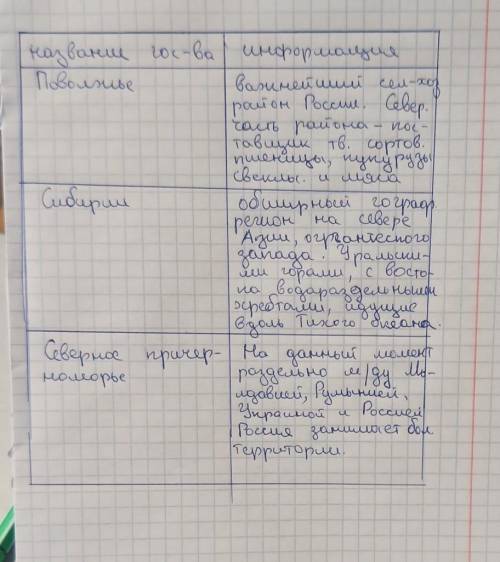 название гос-ва информация
Поволжье
важнейший сел-хоз
район России. Север.
часть района - пос-
тавщик тв. сортов.
пшеницы, кукурузы
свеклы. и мяса
Сибирии
обширный географ.
регион на севере
Азии, огр с
запада. Уральски-
ми горами, с восто-
ка водараздельными
хребтами, идущие
вдоль Тихого океана.
Северное причер-
номорье
На данный момент
раздельно м/ду Мо-
лдавией, Румынией,
Украиной и Россией
Россия занимает бол
территории.